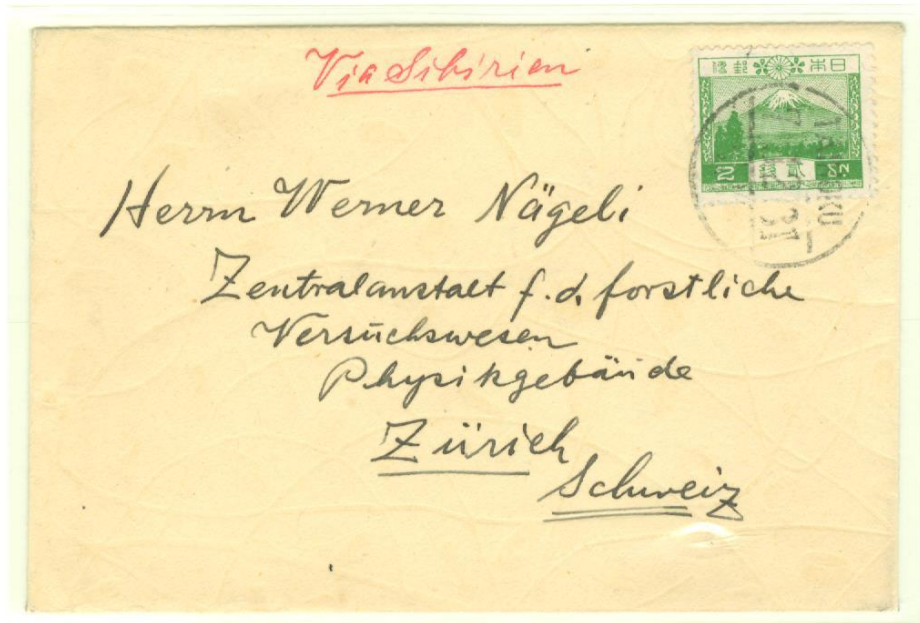 Via Sibirien
日本郵便
2 貳錢 Sn.
31
Herrn Werner Nägeli
Zentralanstalt f. d. forstliche
Versuchswesen
Physikgebäude
Zürich
Schweiz